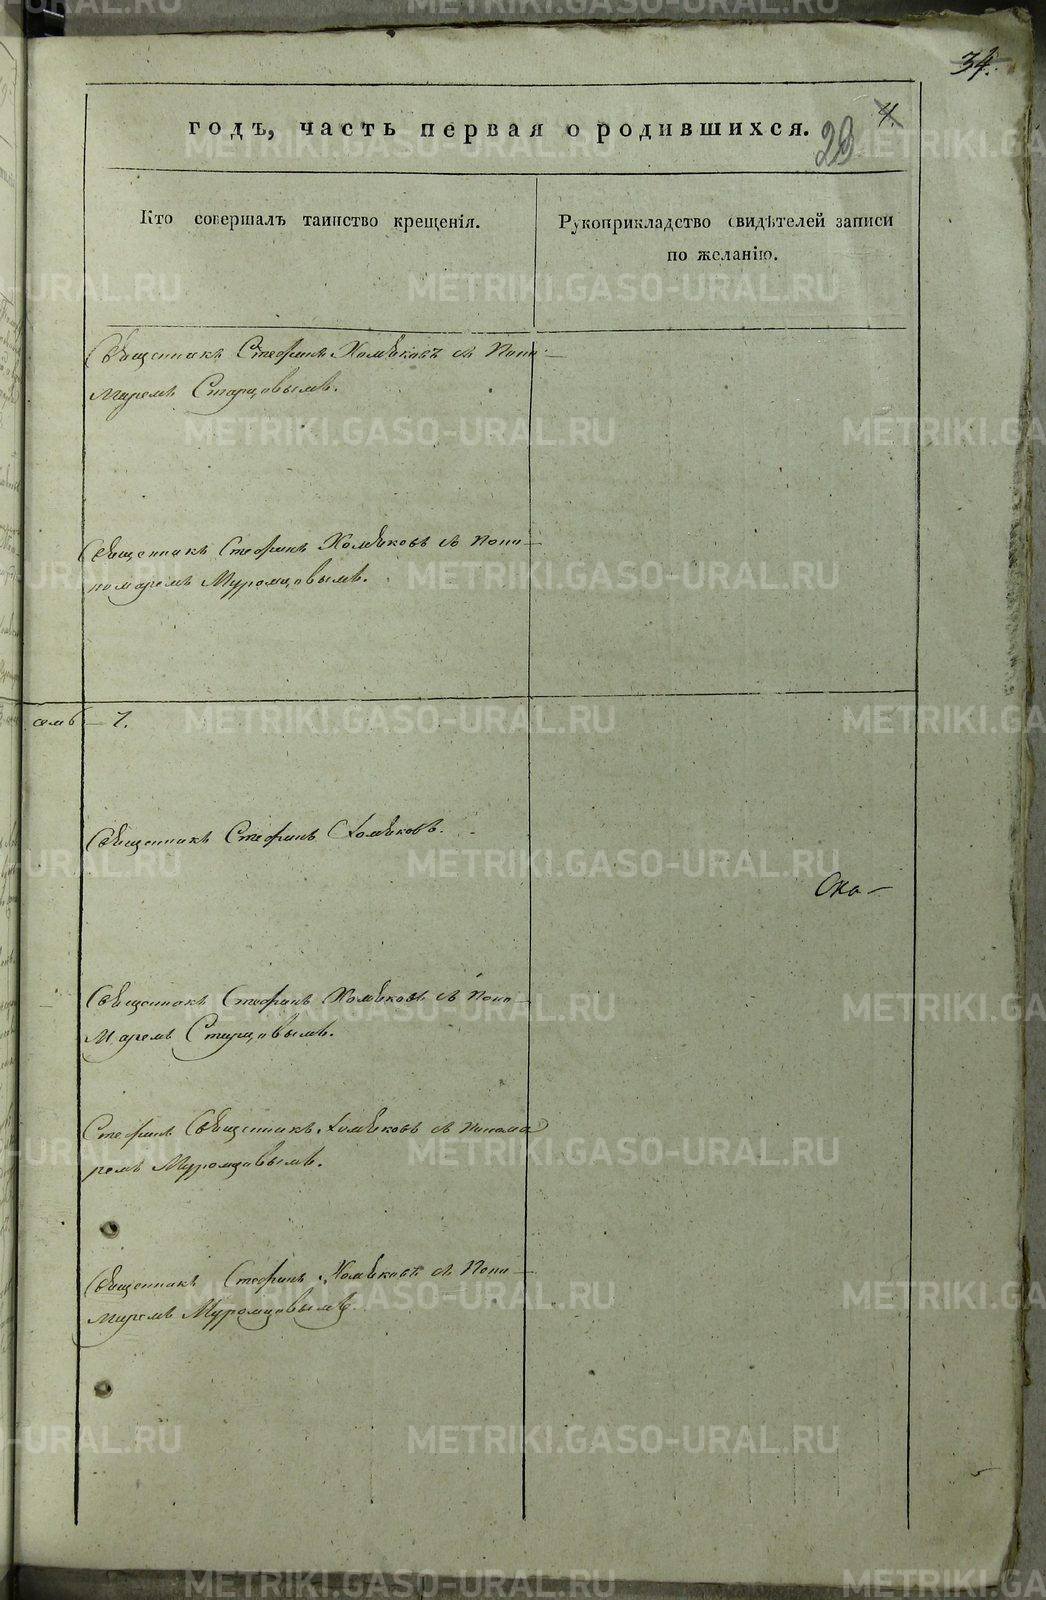 34.
4.
годъ, часть первая о родившихся.
29
Кто совершалъ таинство крещенія.
Рукоприкладство свидѣтелей записи
по желанію.
Священникъ Стефанъ Хомяковъ съ Поно-
маремъ Старцовымъ.
Священникъ Стефанъ Хомяковъ съ Поно-
номаремъ Муромцовымъ.
7.
Священникъ Стефанъ Хомяковъ.
Ска-
Священникъ Стефанъ Хомяковъ съ Поно-
Маремъ Старцовымъ.
Стефанъ Священникъ Хомяковъ съ Понома
ремъ Муромцовымъ.
Священникъ Стефанъ Хомяковъ съ Поно-
маремъ Муромцовымъ.
METRIKI.GASO-URAL.RU